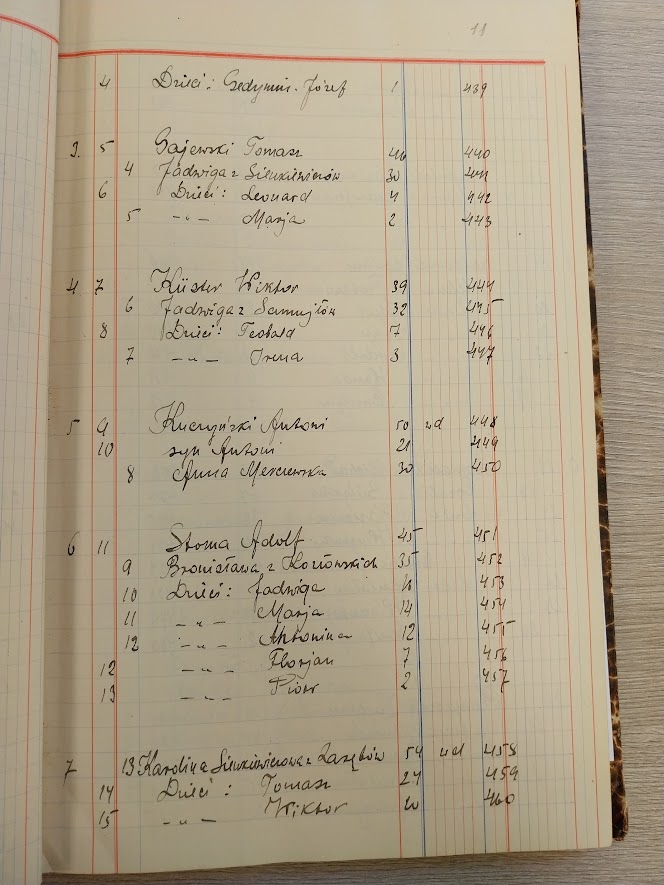 11
4 Dzieci: Gedymin-Józef 1 439
3. 5 Gajewski Tomasz 440
4 Jadwiga z Sienkiewiczów 30 441
6 Dzieci: Leonard 4 442
5 -„- Marja 2 443
4 7 Küster Wiktor 39 444
6 Jadwiga z Samujłów 32 445
8 Dzieci: Teobald 7 446
7 -„- Irena 3 447
5 9 Kuczyński Antoni 50 wd 448
10 syn Antoni 21 449
8 Anna 30 450
6 11 Stoma Adolf 45 451
9 Bronisława z Kozłowskich 35 452
10 Dzieci: Jadwiga 453
11 -„- Marja 14 454
12 -„- Antonina 12 455
12 -„- Florjan 7 456
13 -„- Piotr 2 457
7 13 Karolina Sienkiewiczowa z Zarębów 54 wd 458
14 Dzieci: Tomasz 24 459
15 -„- Wiktor 20 460